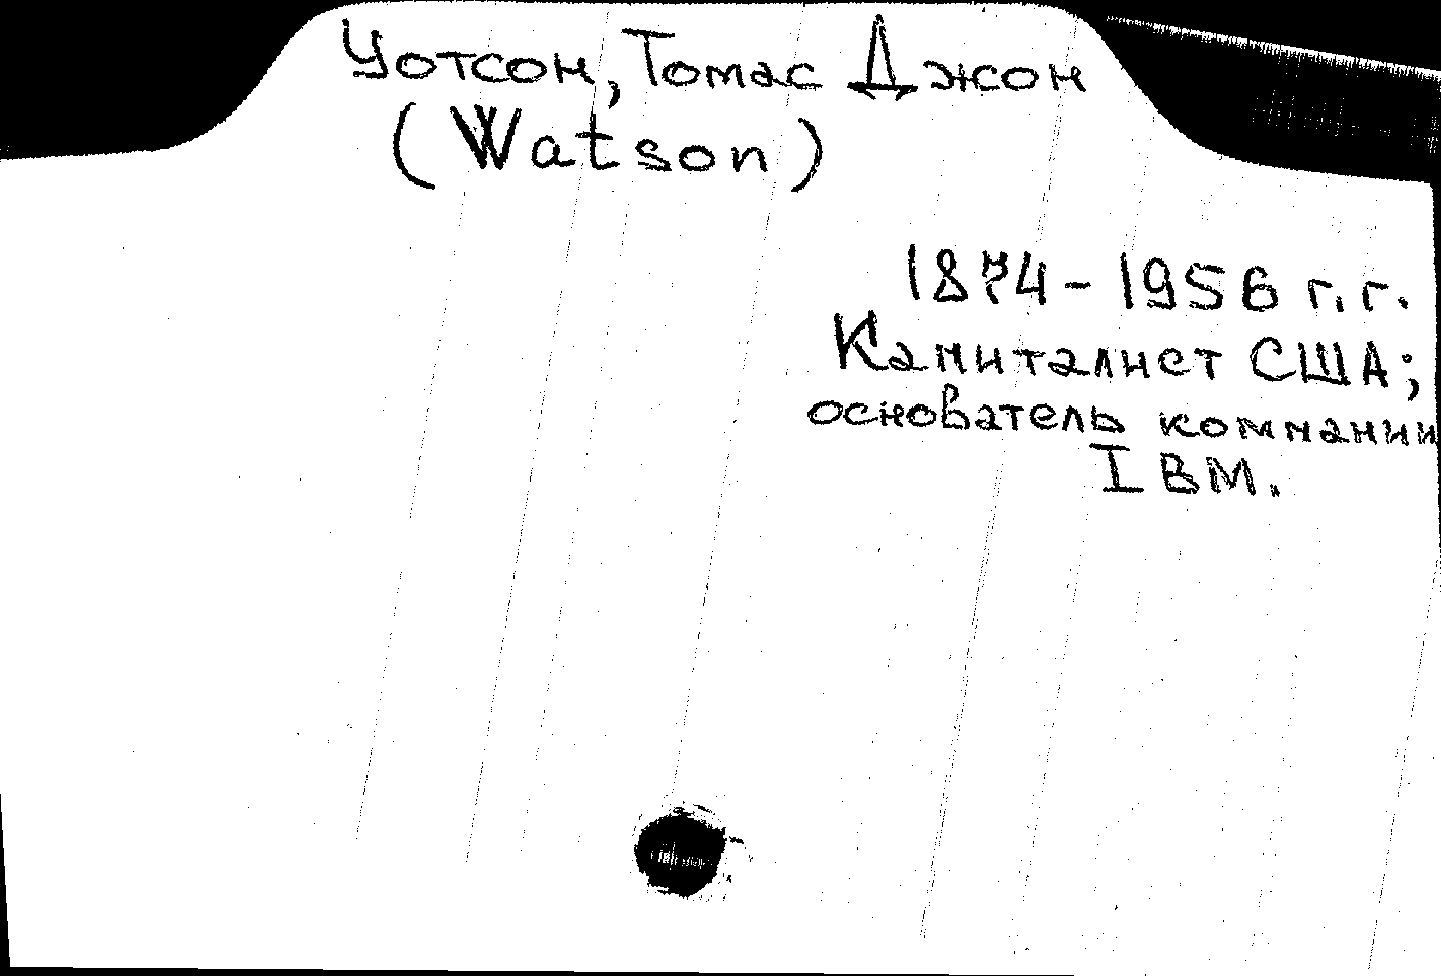 Уотсон, Томас Джон
(Watson)
1874-1956 г.г.
Капиталист США;
основатель компании
IBM.